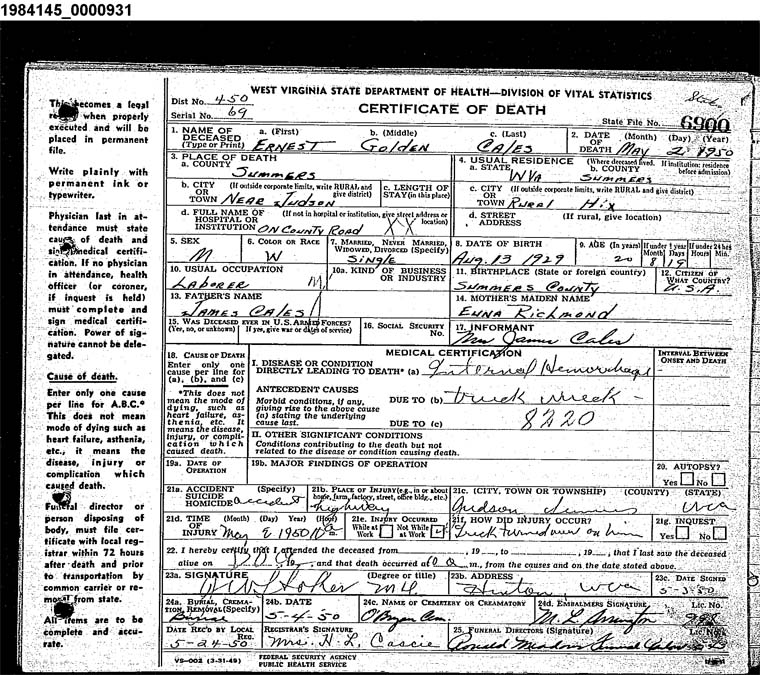 1984145_0000931
WEST VIRGINIA STATE DEPARTMENT OF HEALTH—DIVISION OF VITAL STATISTICS
Dist No. 450
CERTIFICATE OF DEATH
Serial No. 69
State File No. 6900
This becomes a legal
when properly
executed and will be
placed in permanent
file.
Write plainly with
permanent ink or
typewriter.
Physician last in at-
tendance must state
cause of death and
sign medical certifi-
cation. If no physician
in attendance, health
officer (or coroner,
if inquest is held)
must complete and
sign medical certifi-
cation. Power of sig-
nature cannot be dele-
gated.
Cause of death.
Enter only one cause
per line for A.B.C.*
This does not mean
mode of dying such as
heart failure, asthenia,
etc., it means the
disease, injury or
complication which
caused death.
Funeral director or
person disposing of
body, must file cer-
tificate with local reg-
istrar within 72 hours
after death and prior
to transportation by
common carrier or re-
moval from state.
All items are to be
complete and accu-
rate.
1. NAME OF DECEASED (Type or Print) a. (First) b. (Middle) c. (Last) 2. DATE OF DEATH (Month) (Day) (Year)
ERNEST Golden CALES MAY 2 1950
3. PLACE OF DEATH
a. COUNTY SUMMERS
4. USUAL RESIDENCE (Where deceased lived. If institution: residence before admission)
a. STATE W VA b. COUNTY SUMMERS
b. CITY OR TOWN (If outside corporate limits, write RURAL and give district) NEAR JUDSON
c. LENGTH OF STAY (in this place)
c. CITY OR TOWN (If outside corporate limits, write RURAL and give district) RURAL Hix
d. FULL NAME OF HOSPITAL OR INSTITUTION (If not in hospital or institution, give street address or location) ON COUNTY ROAD XX
d. STREET ADDRESS (If rural, give location)
5. SEX M
6. COLOR OR RACE W
7. MARRIED, NEVER MARRIED, WIDOWED, DIVORCED (Specify) SINGLE
8. DATE OF BIRTH AUG. 13 1929
9. AGE (In years) 20 If under 1 year Months 8 Days 19 If under 24 hrs Hours Min.
10. USUAL OCCUPATION LABORER
10a. KIND OF BUSINESS OR INDUSTRY
11. BIRTHPLACE (State or foreign country) SUMMERS COUNTY
12. CITIZEN OF WHAT COUNTRY? U.S.A.
13. FATHER'S NAME JAMES CALES
14. MOTHER'S MAIDEN NAME ENNA RICHMOND
15. WAS DECEASED EVER IN U.S. ARMED FORCES? (Yes, no, or unknown) (If yes, give war or dates of service)
16. SOCIAL SECURITY No.
17. INFORMANT Mrs James Cales
18. CAUSE OF DEATH
Enter only one cause per line for (a), (b), and (c)
*This does not mean the mode of dying, such as heart failure, asthenia, etc. It means the disease, injury, or complication which caused death.
MEDICAL CERTIFICATION
INTERVAL BETWEEN ONSET AND DEATH
I. DISEASE OR CONDITION DIRECTLY LEADING TO DEATH* (a) Internal Hemorrhage
ANTECEDENT CAUSES
Morbid conditions, if any, giving rise to the above cause (a) stating the underlying cause last.
DUE TO (b) truck wreck -
DUE TO (c) 8220
II. OTHER SIGNIFICANT CONDITIONS
Conditions contributing to the death but not related to the disease or condition causing death.
19a. DATE OF OPERATION
19b. MAJOR FINDINGS OF OPERATION
20. AUTOPSY? Yes No
21a. ACCIDENT SUICIDE HOMICIDE (Specify) accident
21b. PLACE OF INJURY (e.g., in or about home, farm, factory, street, office bldg., etc.) highway
21c. (CITY, TOWN OR TOWNSHIP) (COUNTY) (STATE) Judson Summers W Va
21d. TIME OF INJURY (Month) (Day) (Year) (Hour) May 2 1950
21e. INJURY OCCURRED While at Work Not While at Work
21f. HOW DID INJURY OCCUR? Truck turned over on him
21g. INQUEST Yes No
22. I hereby certify that I attended the deceased from , 19 , to , 19 , that I last saw the deceased
alive on , 19 , and that death occurred at m., from the causes and on the date stated above.
23a. SIGNATURE Stokes (Degree or title) MD
23b. ADDRESS Hinton W Va
23c. DATE SIGNED 5-3-50
24a. BURIAL, CREMATION, REMOVAL (Specify) Burial
24b. DATE 5-4-50
24c. NAME OF CEMETERY OR CREMATORY O'Bryan Cem.
24d. EMBALMERS SIGNATURE Lic. No.
DATE REC'D BY LOCAL REG. 5-24-50
REGISTRAR'S SIGNATURE Mrs. H. L. Cascie
25. FUNERAL DIRECTORS (Signature) Lic. No.
Ronald Meadows Funeral
VS-002 (3-31-49) FEDERAL SECURITY AGENCY
PUBLIC HEALTH SERVICE